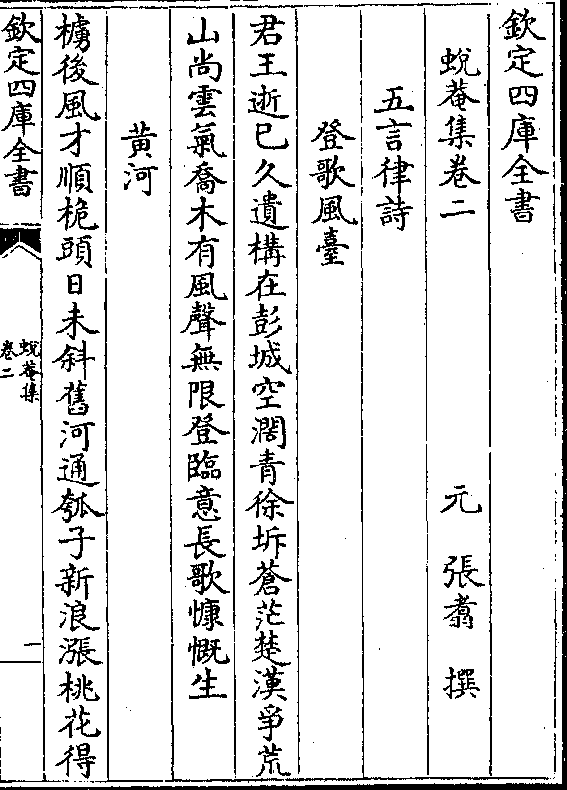 欽定四庫全書
蛻菴集卷二
元　張翥　撰
五言律詩
登歌風臺
君王逝已久遺構在彭城空濶青徐坼蒼茫楚漢爭荒
山尚雲氣喬木有風聲無限登臨意長歌慷慨生
黄河
櫓後風才順桅頭日未斜舊河通瓠子新浪漲桃花得
欽定四庫全書
蛻菴集
卷二
一